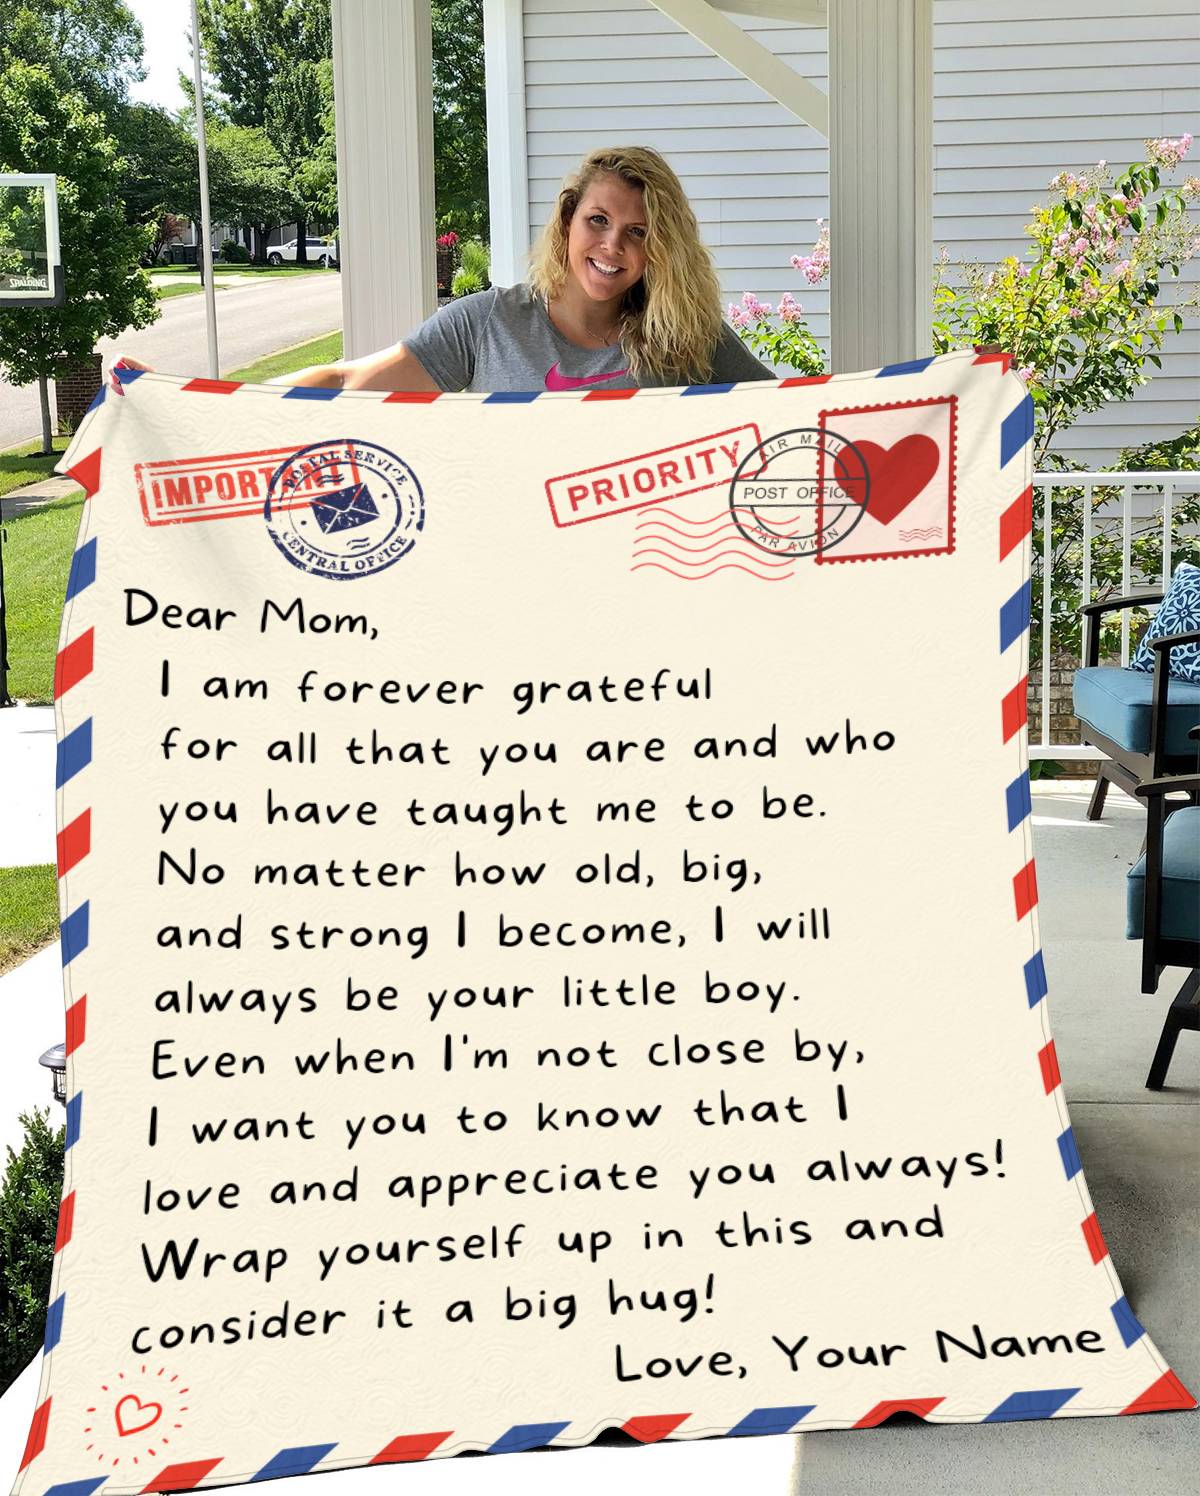 SPALDING
IMPORTANT
POSTAL SERVICE
CENTRAL OFFICE
PRIORITY
AIR MAIL
POST OFFICE
PAR AVION
Dear Mom,
I am forever grateful
for all that you are and who
you have taught me to be.
No matter how old, big,
and strong I become, I will
always be your little boy.
Even when I'm not close by,
I want you to know that I
love and appreciate you always!
Wrap yourself up in this and
consider it a big hug!
Love, Your Name